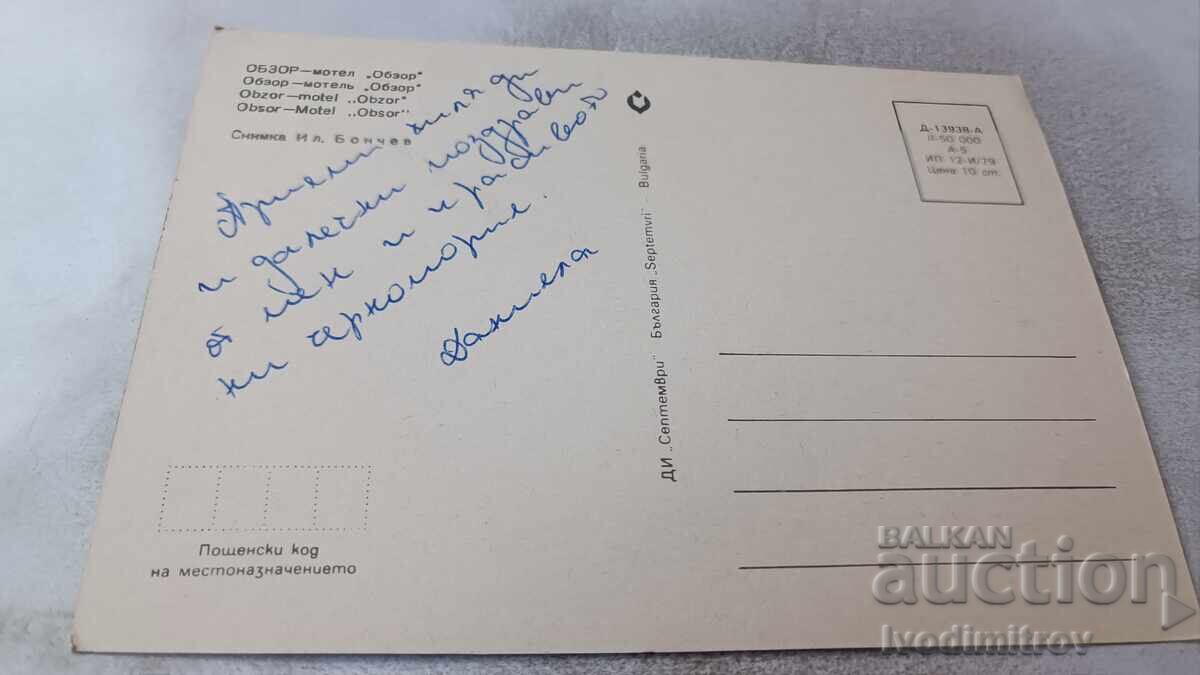 ОБЗОР—мотел „Обзор"
Обзор—мотель „Обзор"
Obzor—motel „Obzor"
Obsor—Motel „Obsor"
Снимка Ил. Бончев
Приеми хиляди
и далечни поздрави
от мен и красивото
ни черноморие.
Даниела
Пощенски код
на местоназначението
ДИ „Септември" България „Septemvri" - Bulgaria
Д-13938-А
II-50 000
А-5
ИП 12-И/79
Цена 10 ст.
BALKAN
auction
Ivodimitrov